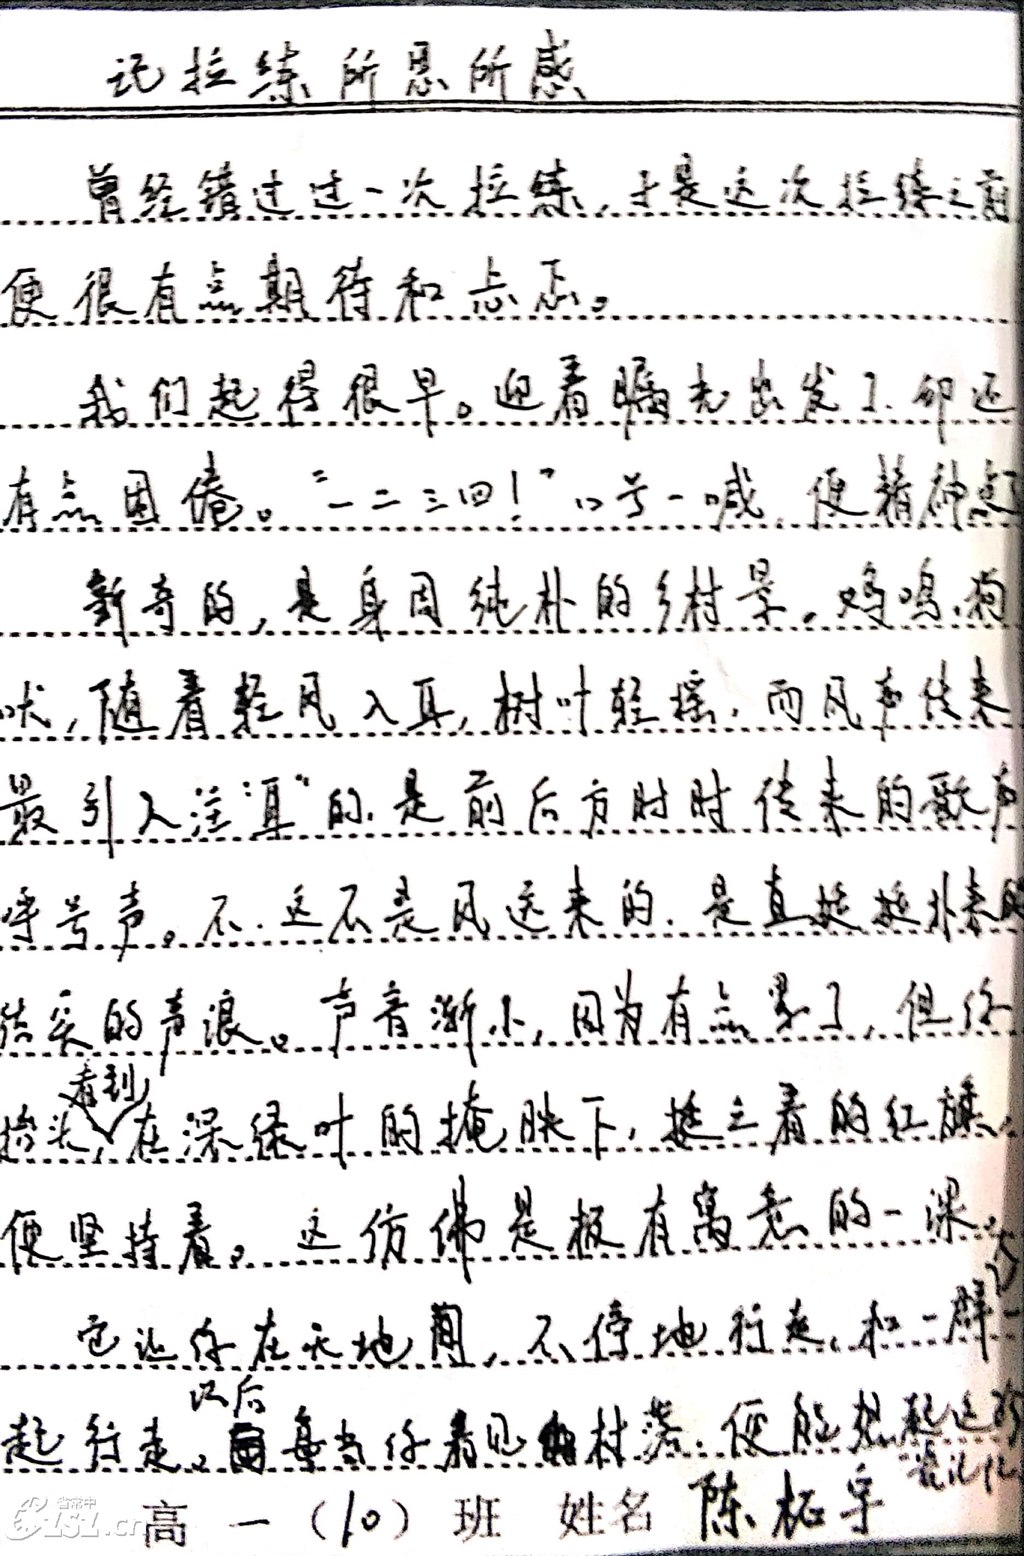 记拉练所思所感
曾经错过过一次拉练，于是这次拉练之前
便很有点期待和忐忑。
我们起得很早。迎着曙光出发了，却还
有点困倦。“一二三四！”口号一喊，便精神点了
新奇的，是身周纯朴的乡村景。鸡鸣、狗
吠，随着轻风入耳，树叶轻摇，而风声传来
最引人注“耳”的，是前后方时时传来的歌声
呼号声。不，这不是风送来的，是直挺挺扑来的
结实的声浪。声音渐小，因为有点累了，但你
看到
抬头，在深绿叶的掩映下，挺立着的红旗，
便坚持着。这仿佛是极有寓意的一课。
它让你在天地间，不停地行走，和一群人一
以后
起行走。每当你看见村落，便能想起这
高一（10）班 姓名 陈柘宇
省常中